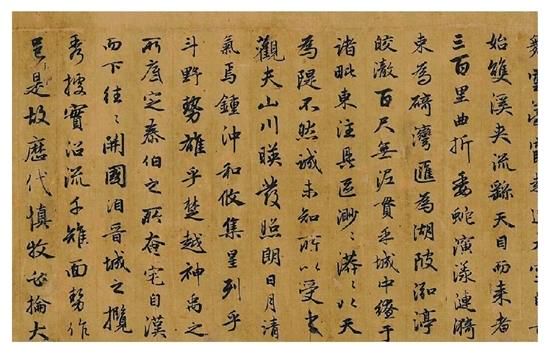 始雙溪夾流繇天目而來者
三百里曲折委蛇演漾漣漪
束為碕灣匯為湖陂泓渟
皎澈百尺無泥貫乎城中繚于
諸毗東注具區渺〻漭〻以天
為隄不然誠未知所以受之
觀夫山川暎發照朗日月清
氣焉鍾沖和攸集星列乎
斗野勢雄乎楚越神禹之
所底定泰伯之所奄宅自漢
而下往〻開國洎晉城之攬
秀據實沿流千雉面勢作
邑是故歷代慎牧必掄大